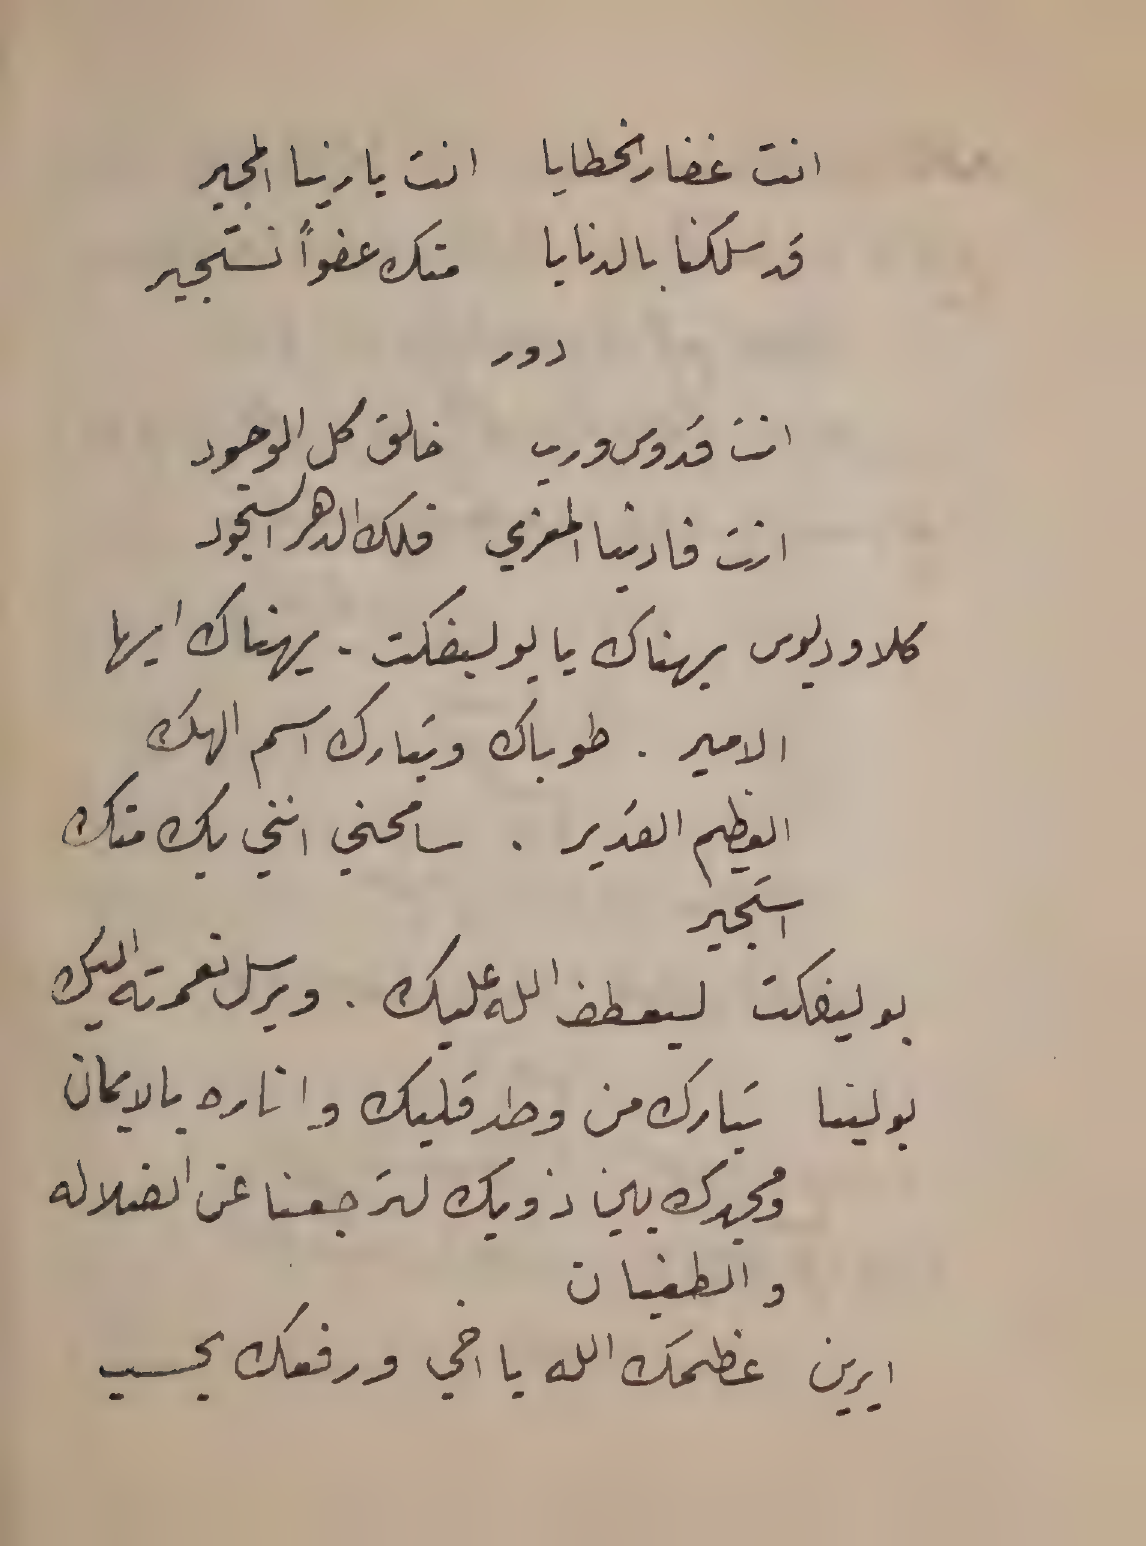 انت غفار الخطايا انت يا ربنا المجير
قد سلكنا بالدنايا منك عفواً نستجير
دور
انت قدوس ورب خالق كل الوجود
انت فادينا المعزي فلك الدهر السجود
كلاوديوس يهناك يا بوليفكت . يهناك ايها
الامير . طوباك وتبارك اسم الهك
العظيم القدير . سامحني انني بك منك
استجير
بوليفكت ليعطف الله عليك . ويرسل نعمته اليك
بولينا تبارك من وطد قلبك وانارە بالايمان
ومجدك بين ذويك لترجعنا عن الضلاله
والطغيان
ايرين عظمك الله يا اخي ورفعك بحسب